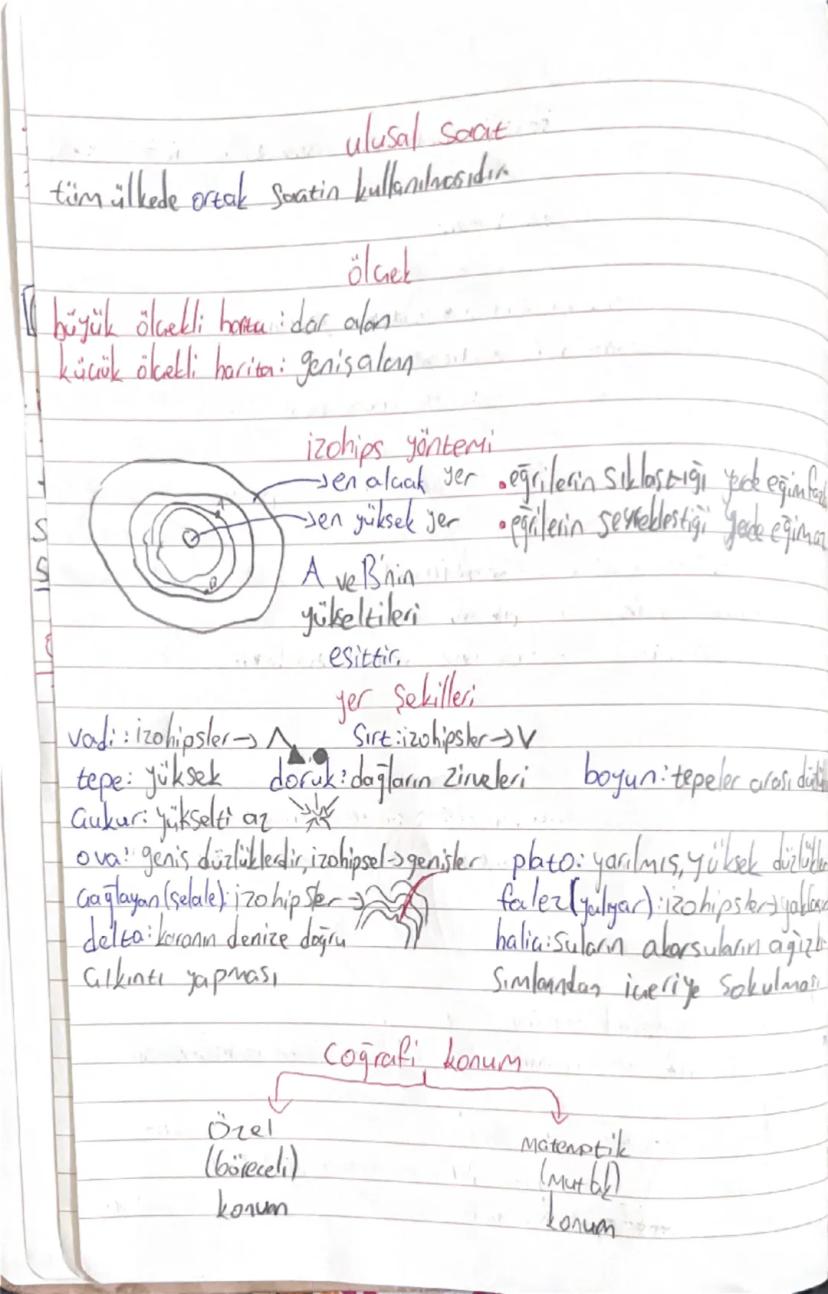 ulusal saat
tüm ülkede ortak saatin kullanılmasıdır
ölçek
büyük ölçekli harita: dar alan
küçük ölçekli harita: geniş alan
izohips yöntemi
→en alçak yer • eğrilerin sıklaştığı yerde eğim
→en yüksek yer • eğrilerin seyrekleştiği yerde eğim az
A ve B'nin
yükseltileri
eşittir.
yer şekilleri
vadi: izohipsler→ Λ sırt: izohipsler→V
tepe: yüksek doruk: dağların zirveleri boyun: tepeler arası
çukur: yükselti az
ova: geniş düzlüklerdir, izohipsel→genişler plato: yarılmış, yüksek
çağlayan (şelale): izohipsler→ falez (yalıyar): izohipsler→
delta: karanın denize doğru haliç: suların akarsuların
çıkıntı yapması içeriye sokulması
coğrafi konum
Özel Matematik
(göreceli) (mutlak)
konum konum